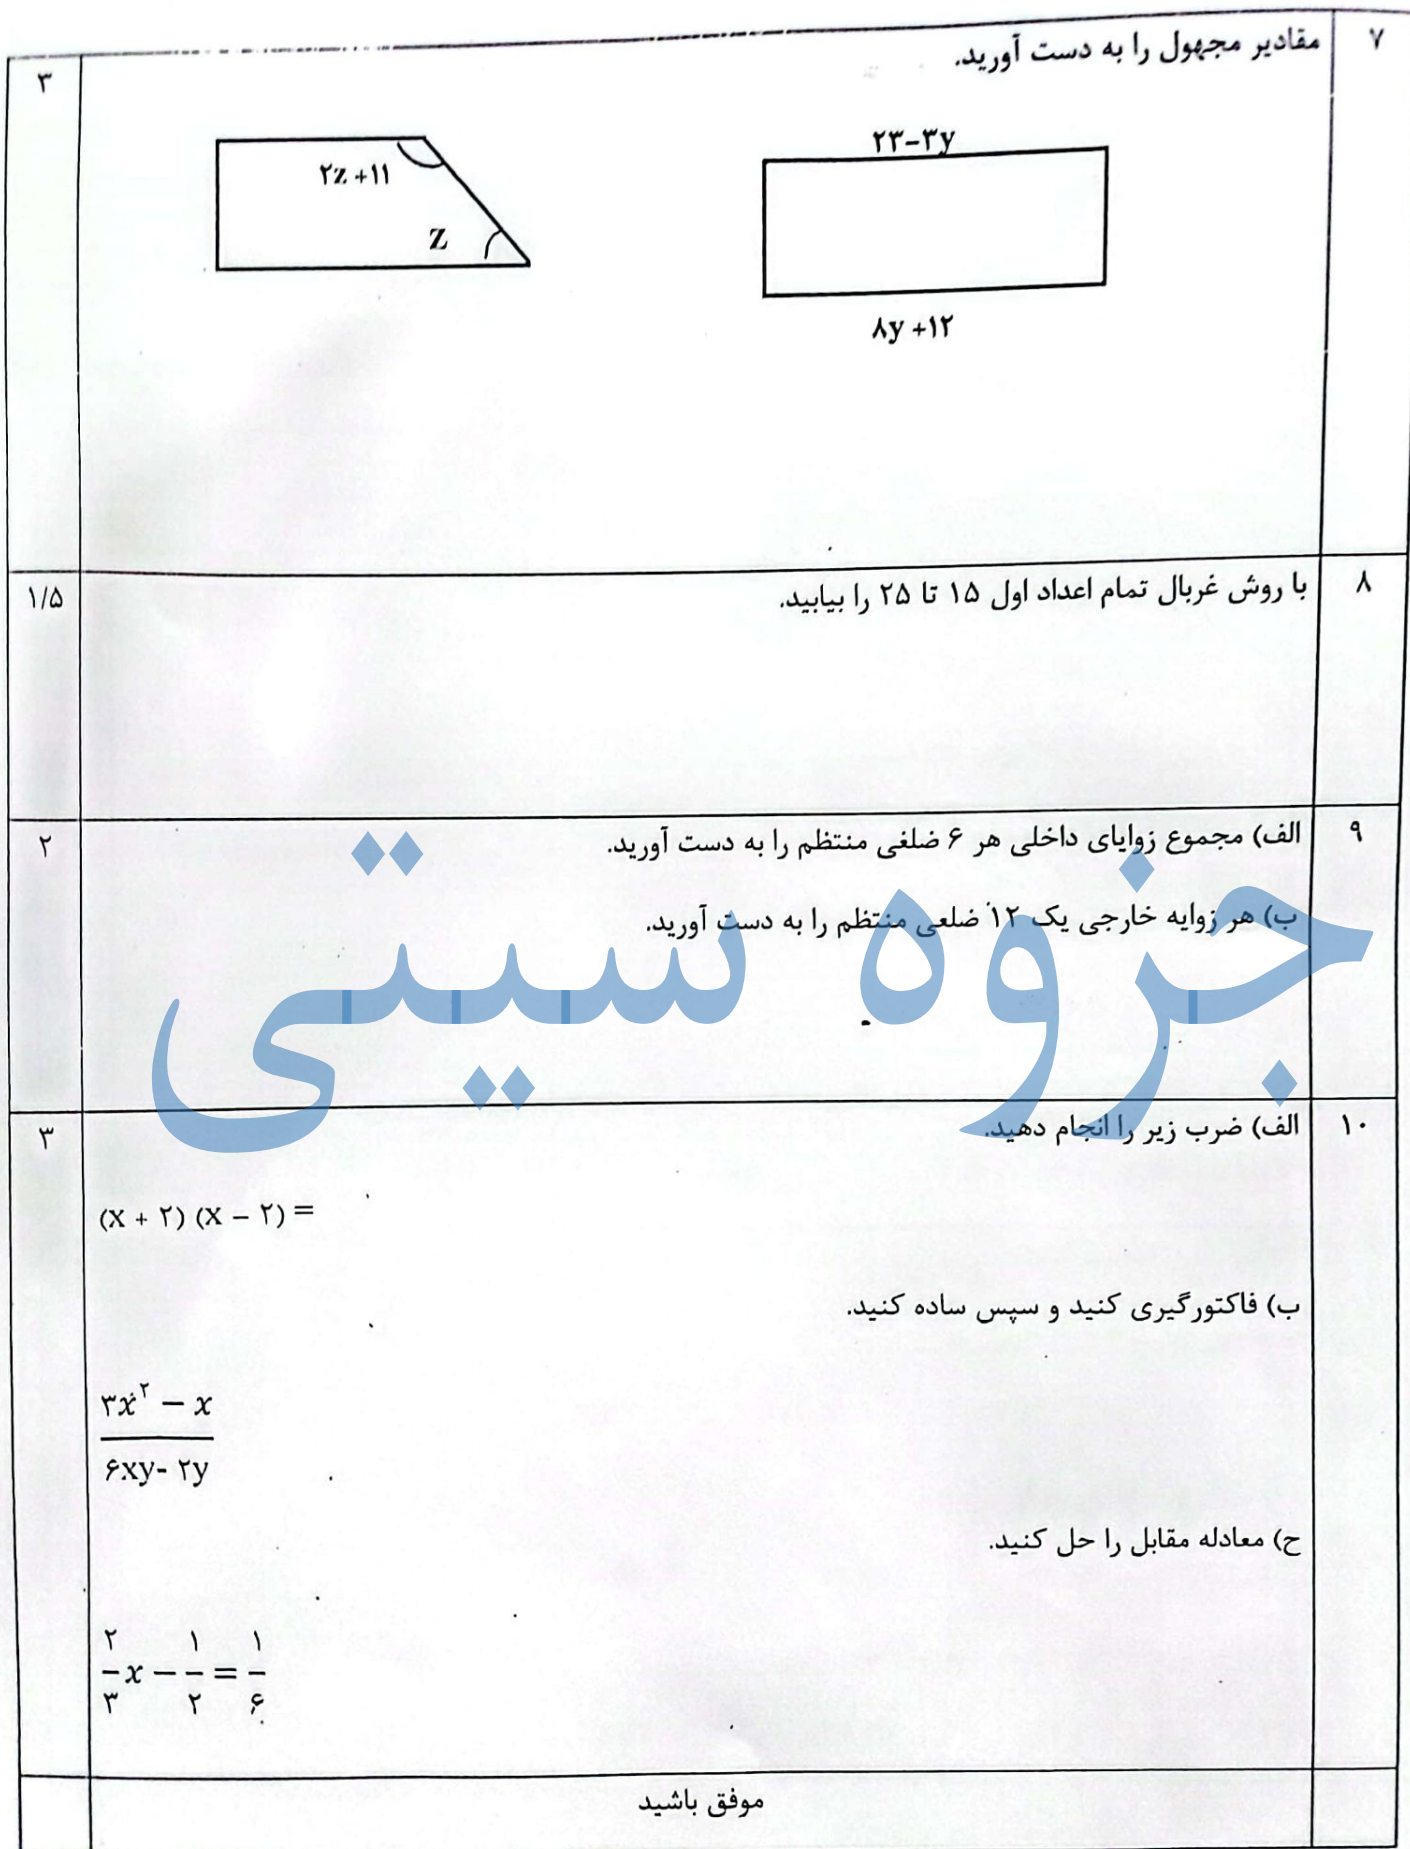 ۷ مقادیر مجهول را به دست آورید. ۳
۲۳-۳y
۸y +۱۲
۲z +۱۱
z
۸ با روش غربال تمام اعداد اول ۱۵ تا ۲۵ را بیابید. ۱/۵
۹ الف) مجموع زوایای داخلی هر ۶ ضلغی منتظم را به دست آورید. ۲
ب) هر زوایه خارجی یک ۱۲ ضلعی منتظم را به دست آورید.
جزوه سیتی
۱۰ الف) ضرب زیر را انجام دهید. ۳
(x + ۲) (x – ۲) =
ب) فاکتورگیری کنید و سپس ساده کنید.
۳x² – x
۶xy- ۲y
ح) معادله مقابل را حل کنید.
۲/۳ x – ۱/۲ = ۱/۶
موفق باشید